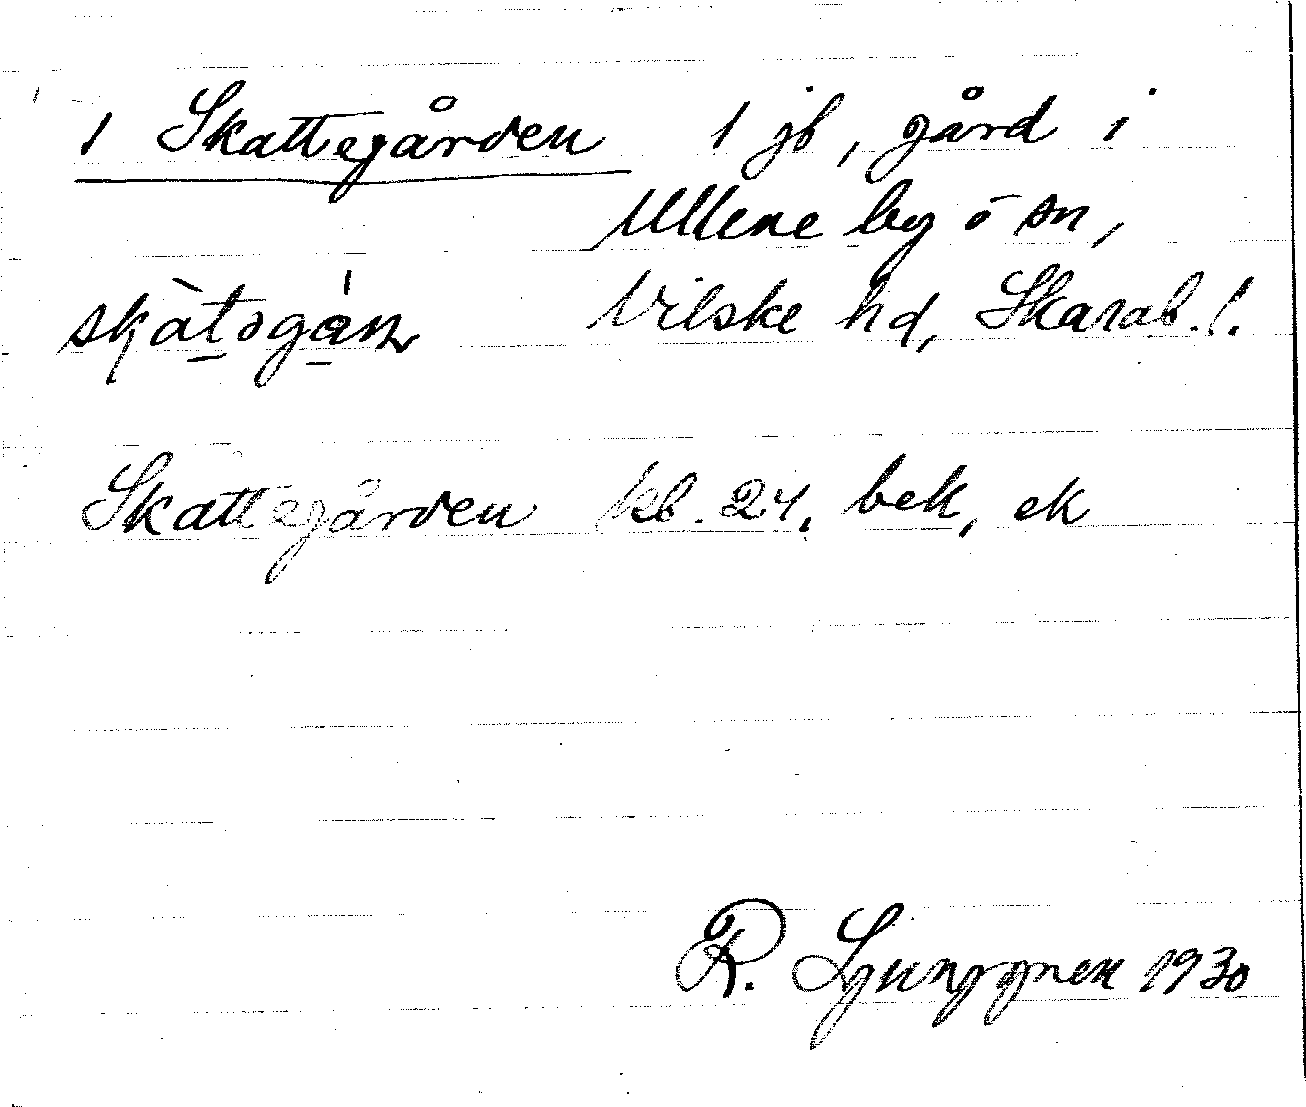 1 Skattegården 1 jb, gård i
Ullene by o sn,
skàtəgán Vilske hd, Skarab. l.
Skattegården kb. 24. bek, ek
R. Ljunggren 1930